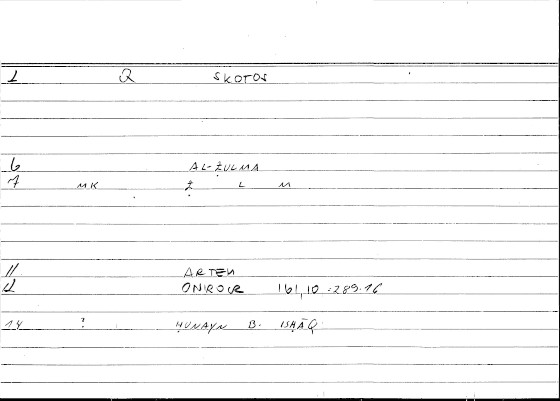 1 Q SKOTOS
6 AL-ẒULMA
7 MK Ẓ L M
11 ARTEM
12 ONIROCR 161,10 :289.16
14 ? ḤUNAYN B. ISḤĀQ